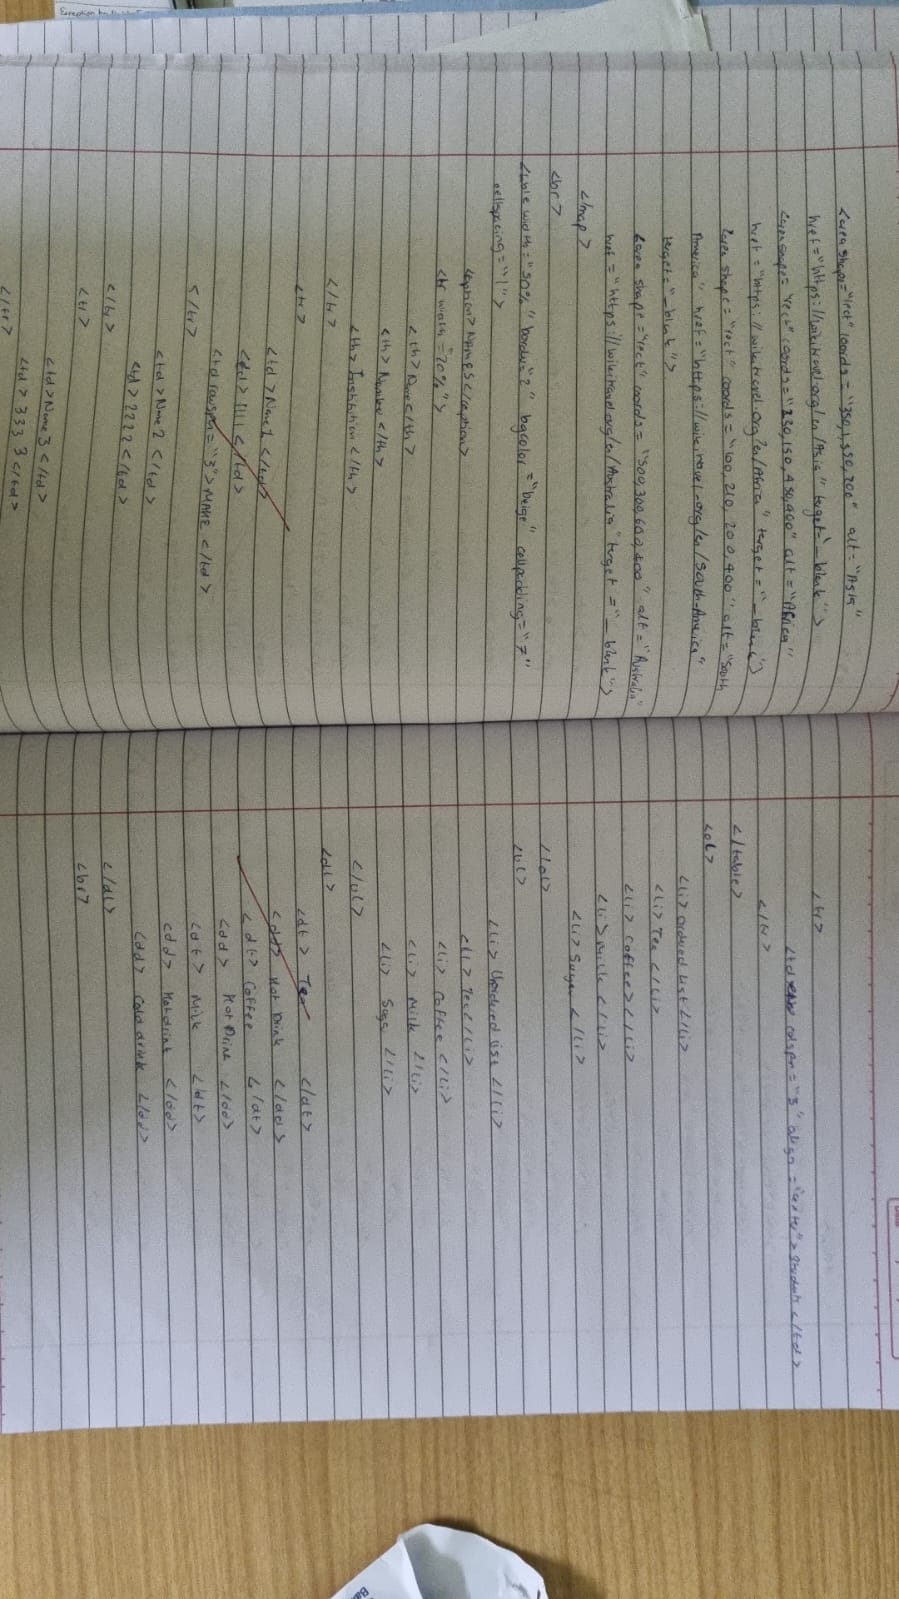 <area shape="rect" coords="350,1,550,200" alt="Asia"
href="https://wikitravel.org/en/Asia" target="_blank">
<area shape="rect" coords="230,150,450,400" alt="Africa"
href="https://wikitravel.org/en/Africa" target="_blank">
<area shape="rect" coords="100,210,200,400" alt="South
America" href="https://wikitravel.org/en/South-America"
target="_blank">
<area shape="rect" coords="500,300,600,400" alt="Australia"
href="https://wikitravel.org/en/Australia" target="_blank">
</map>
<br>
<table width="50%" border="2" bgcolor="beige" cellpadding="7"
cellspacing="1">
<caption>NAMES</caption>
<tr width="20%">
<th>Name</th>
<th>Number</th>
<th>Institution</th>
</tr>
<tr>
<td>Name 1</td>
<td>1111</td>
<td rowspan="3">MAHE</td>
</tr>
<td>Name 2</td>
<td>2222</td>
</tr>
<tr>
<td>Name 3</td>
<td>3333</td>
</tr>
<tr>
<td colspan="3" align="center">students</td>
</tr>
</table>
<ol>
<li>Ordered List</li>
<li>Tea</li>
<li>Coffee></li>
<li>Milk</li>
<li>Sugar</li>
</ol>
<ul>
<li>Unordered list</li>
<li>Tea</li>
<li>Coffee</li>
<li>Milk</li>
<li>Sugar</li>
</ul>
<dl>
<dt>Tea</dt>
<dd>Hot Drink</dd>
<dt>Coffee</dt>
<dd>Hot Drink</dd>
<dt>Milk</dt>
<dd>Hot drink</dd>
<dd>Cold drink</dd>
</dl>
<br>